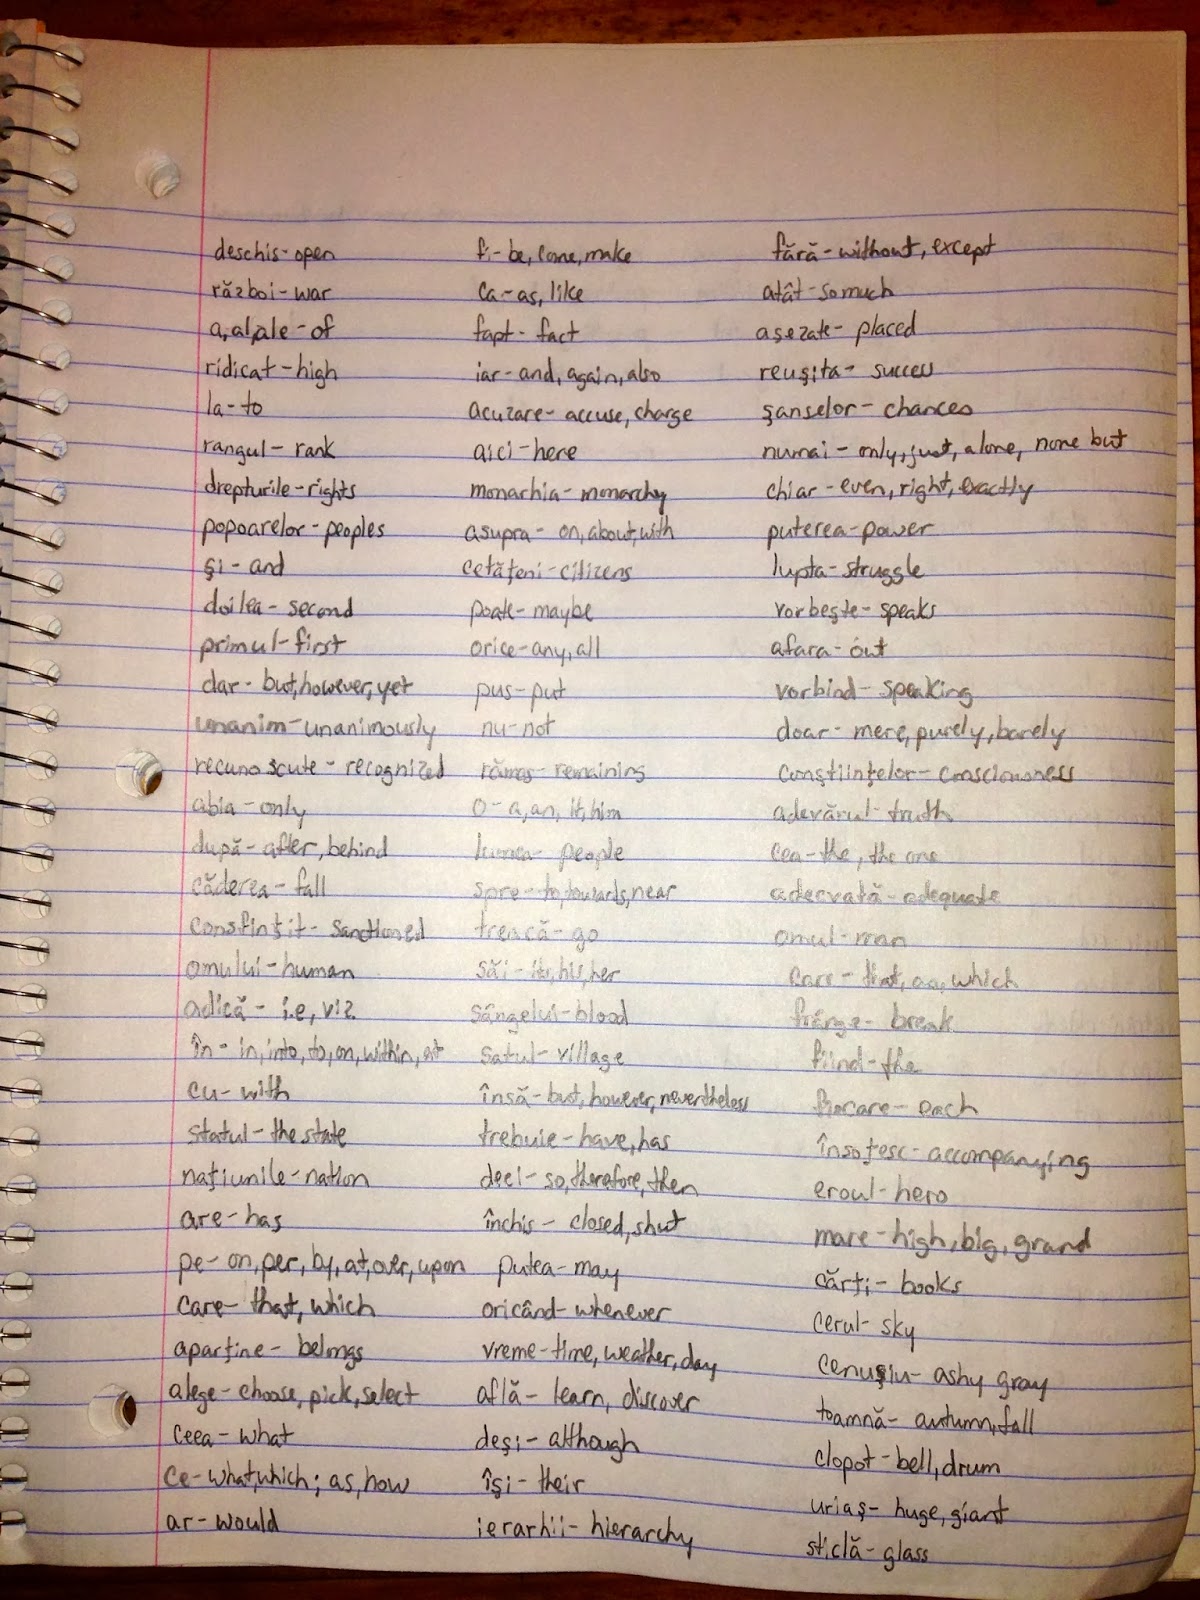 deschis - open
război - war
a, al, ale - of
ridicat - high
la - to
rangul - rank
drepturile - rights
popoarelor - peoples
şi - and
doilea - second
primul - first
dar - but, however, yet
unanim - unanimously
recunoscute - recognized
abia - only
după - after, behind
căderea - fall
consfinţit - sanctioned
omului - human
adică - i.e, viz
în - in, into, to, on, within, at
cu - with
statul - the state
naţiunile - nation
are - has
pe - on, per, by, at, over, upon
care - that, which
aparţine - belongs
alege - choose, pick, select
ceea - what
ce - what, which; as, how
ar - would
fi - be, come, make
ca - as, like
fapt - fact
iar - and, again, also
acuzare - accuse, charge
aici - here
monarhia - monarchy
asupra - on, about, with
cetăţeni - citizens
poate - maybe
orice - any, all
pus - put
nu - not
rămas - remaining
o - a, an, it, him
lumea - people
spre - to, towards, near
treacă - go
săi - its, his, her
sângelui - blood
satul - village
însă - but, however, nevertheless
trebuie - have, has
deci - so, therefore, then
închis - closed, shut
putea - may
oricând - whenever
vreme - time, weather, day
află - learn, discover
deşi - although
îşi - their
ierarhii - hierarchy
fără - without, except
atât - so much
aşezate - placed
reuşita - success
şanselor - chances
numai - only, just, alone, none but
chiar - even, right, exactly
puterea - power
lupta - struggle
vorbeşte - speaks
afara - out
vorbind - speaking
doar - mere, purely, barely
conştiinţelor - consciousness
adevărul - truth
cea - the, the one
adecvată - adequate
omul - man
care - that, as, which
frânge - break
fiind - the
fiecare - each
însoţesc - accompanying
eroul - hero
mare - high, big, grand
cărţi - books
cerul - sky
cenuşiu - ashy gray
toamnă - autumn, fall
clopot - bell, drum
uriaş - huge, giant
sticlă - glass